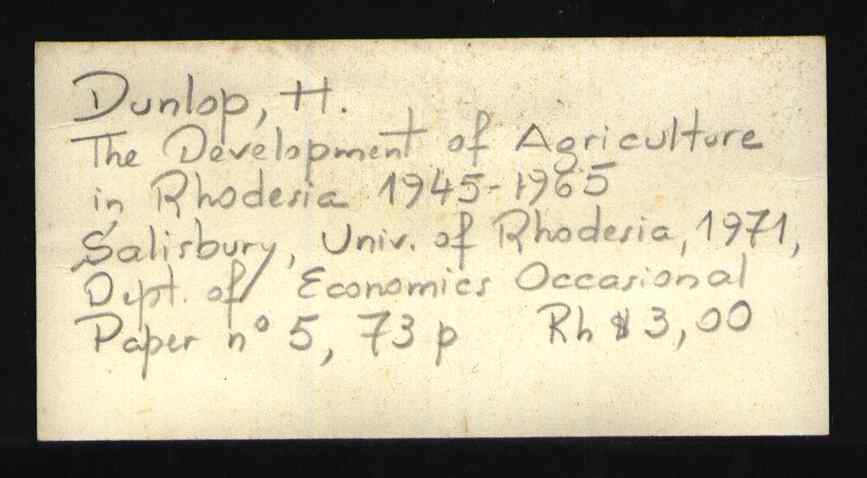 Dunlop, H.
The Development of Agriculture
in Rhodesia 1945-1965
Salisbury, Univ. of Rhodesia, 1971,
Dept. of Economics Occasional
Paper n° 5, 73 p Rh $ 3,00